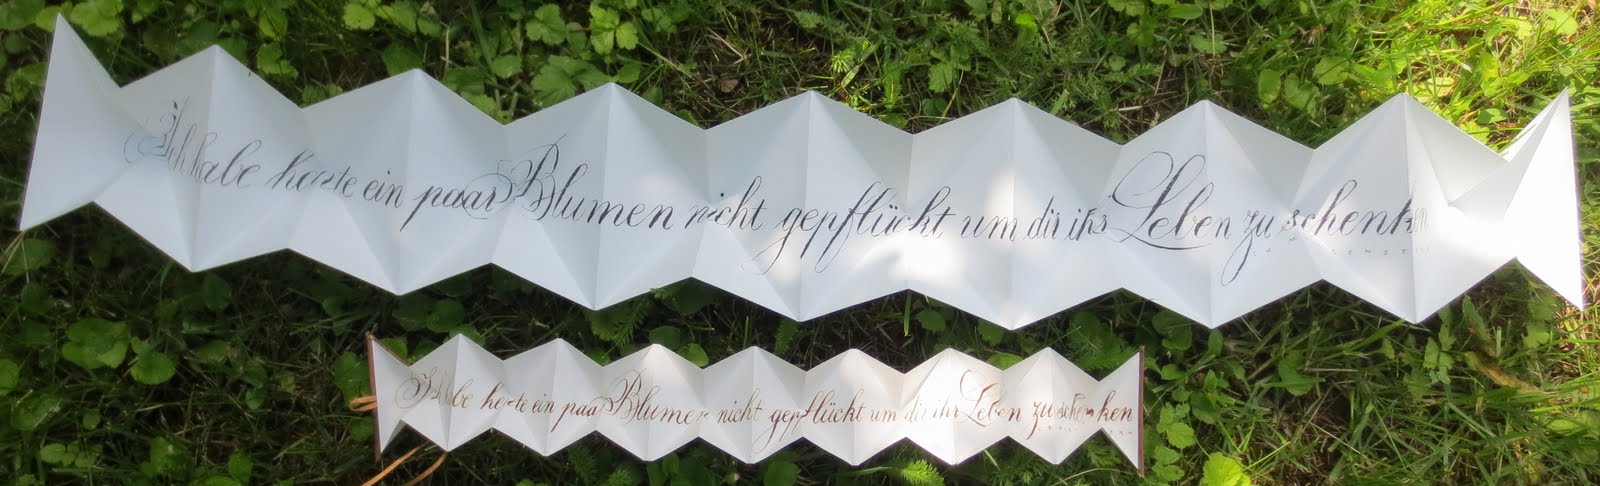 Ich habe heute ein paar Blumen nicht gepflückt um dir ihr Leben zu schenken
Ich habe heute ein paar Blumen nicht gepflückt um dir ihr Leben zu schenken